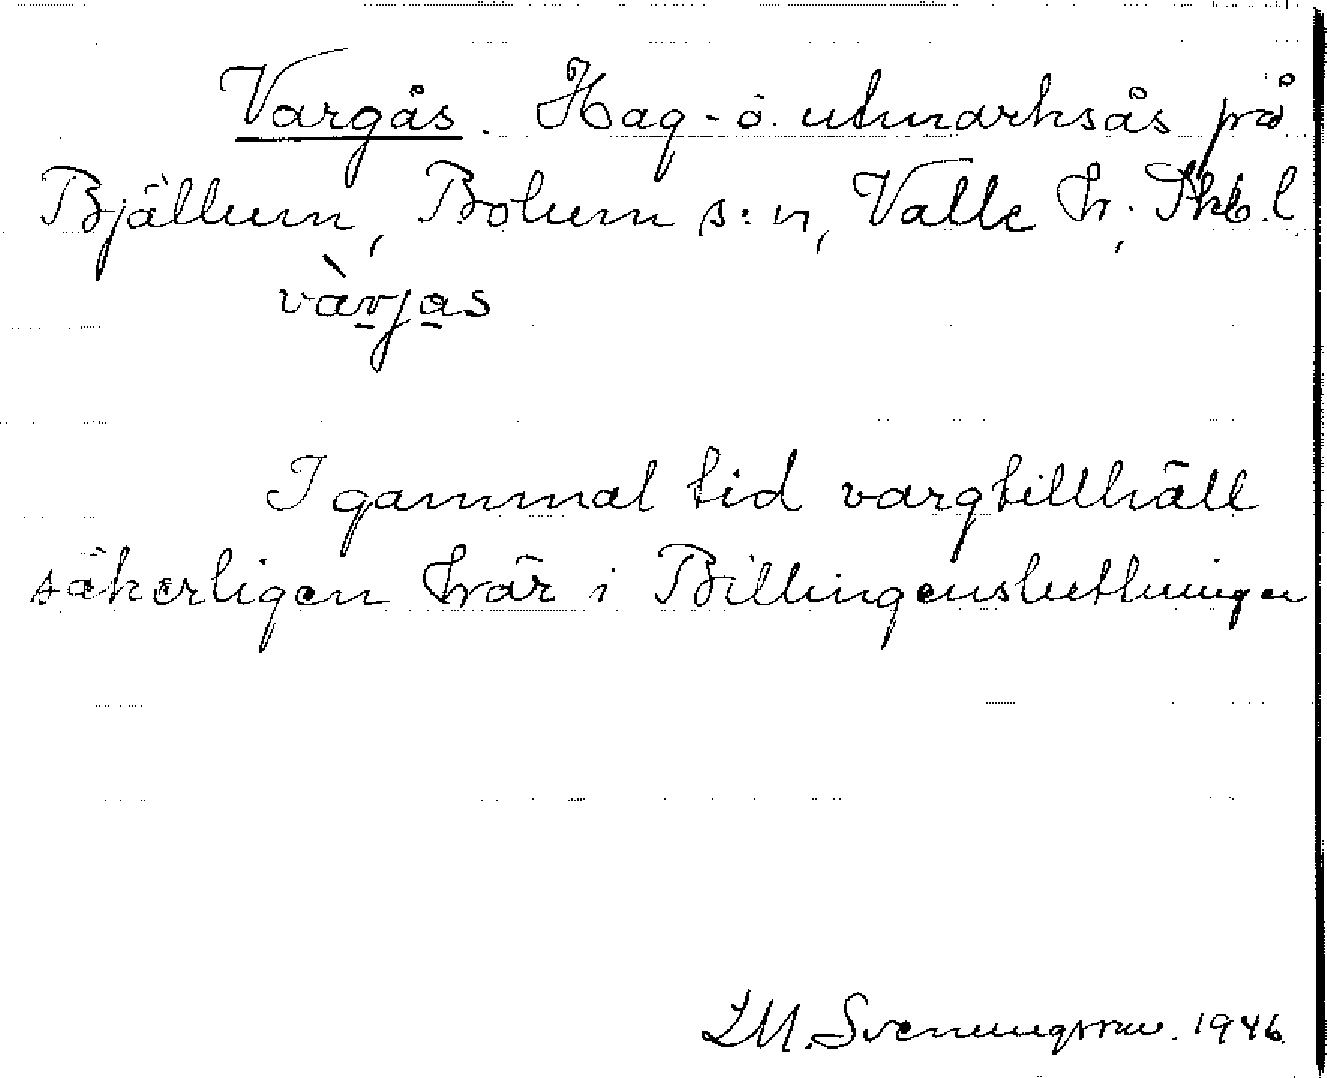 Vargås. Hag- o. utmarksås på
Bjällum, Bolum s:n, Valle hr., Skb.l
vàrjas
I gammal tid vargtillhåll
säkerligen här i Billingensluttningen
L M. Svenungsson. 1946